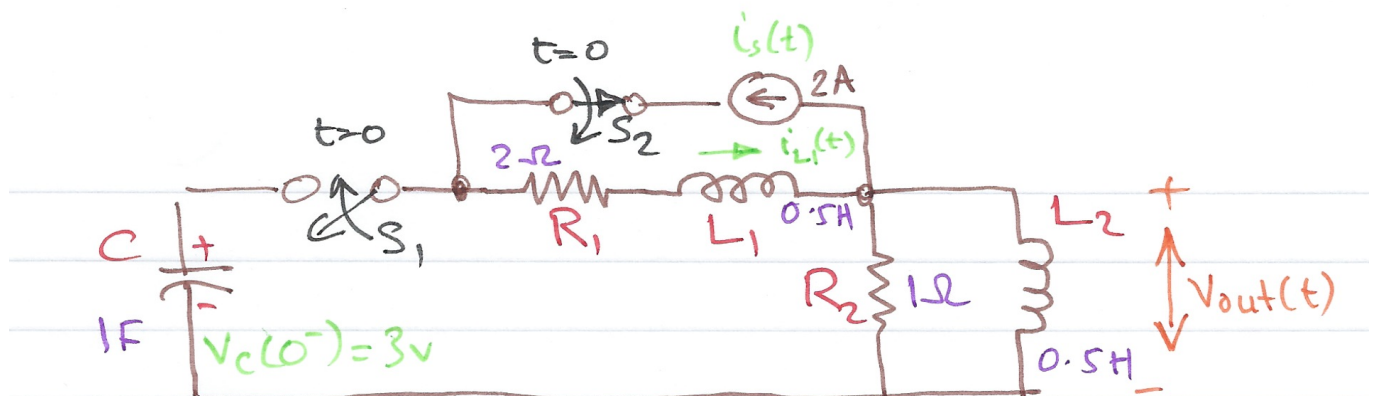 t=0
is(t)
2A
t=0
S2
2Ω
iL1(t)
S1
R1
L1
0.5H
L2
+
C
+
-
R2
1Ω
Vout(t)
1F
Vc(0⁻)=3v
0.5H
-